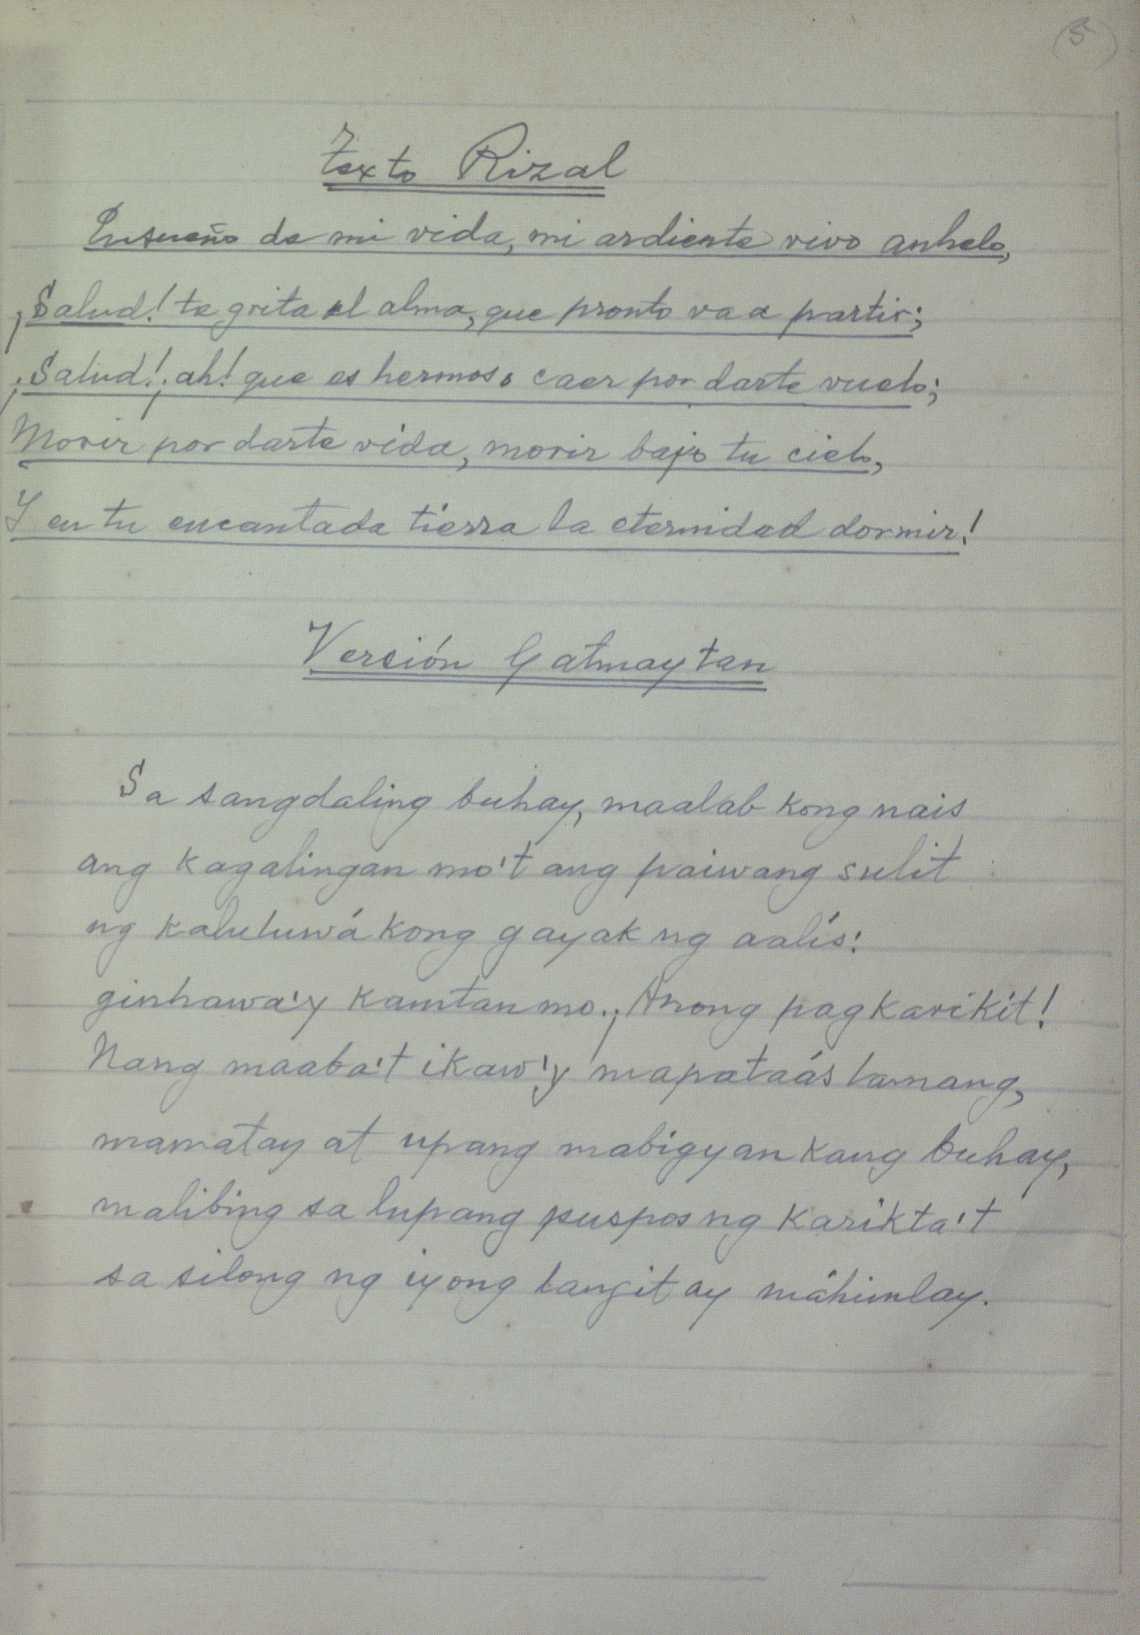 (5)
Texto Rizal
Ensueño de mi vida, mi ardiente vivo anhelo,
¡Salud! te grita el alma, que pronto va a partir;
¡Salud! ¡ah! que es hermoso caer por darte vuelo;
Morir por darte vida, morir bajo tu cielo,
Y en tu encantada tierra la eternidad dormir!
Versión Gatmaytan
Sa sangdaling buhay, maalab kong nais
ang kagalingan mo't ang paiwang sulit
ng kaluluwá kong gayak ng aalís:
ginhawa'y kamtan mo. ¡Anong pagkarikit!
Nang maaba't ikaw'y mapataás lamang,
mamatay at upang mabigyan kang buhay,
malibing sa lupang puspos ng karikta't
sa silong ng iyong langit ay máhimlay.